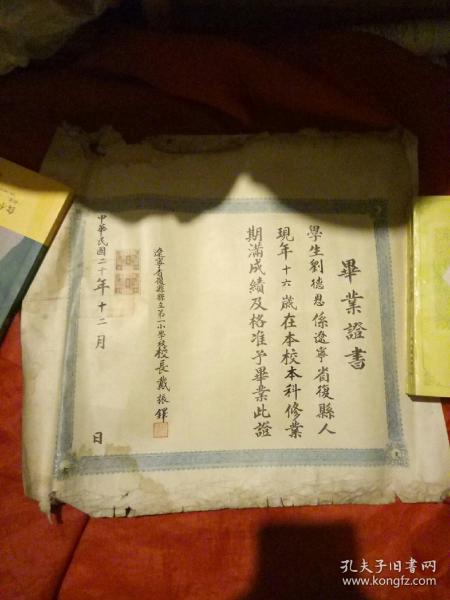 畢業證書
學生劉德恩係遼寧省復縣人
現年十六歲在本校本科修業
期滿成績及格准予畢業此證
遼寧省復縣縣立第一小學校校長戴振鐸
中華民國二十年十二月 日
孔夫子旧书网
www.kongfz.com